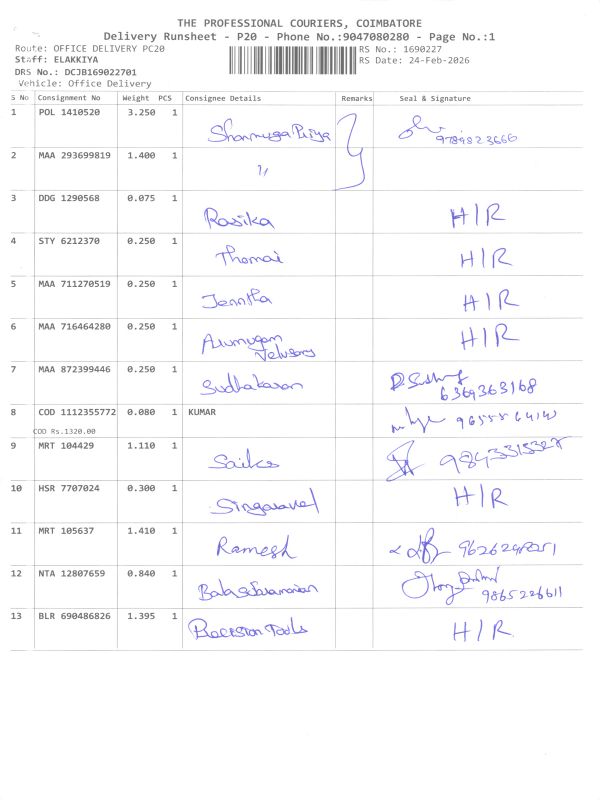 THE PROFESSIONAL COURIERS, COIMBATORE
Delivery Runsheet - P20 - Phone No.:9047080280 - Page No.:1
Route: OFFICE DELIVERY PC20
RS No.: 1690227
Staff: ELAKKIYA
RS Date: 24-Feb-2026
DRS No.: DCJB169022701
Vehicle: Office Delivery
S No Consignment No Weight PCS Consignee Details Remarks Seal & Signature
1 POL 1410520 3.250 1 Shanmuga Priya
2 MAA 293699819 1.400 1 "
3 DDG 1290568 0.075 1 Rasika H/R
4 STY 6212370 0.250 1 Thomai H/R
5 MAA 711270519 0.250 1 H/R
6 MAA 716464280 0.250 1 Arumugam H/R
7 MAA 872399446 0.250 1 Sudhakaran 6369363168
8 COD 1112355772 0.080 1 KUMAR
COD Rs.1320.00
9 MRT 104429 1.110 1
10 HSR 7707024 0.300 1 Singaravel H/R
11 MRT 105637 1.410 1 Ramesh
12 NTA 12807659 0.840 1 9865226611
13 BLR 690486826 1.395 1 Precision Tools H/R